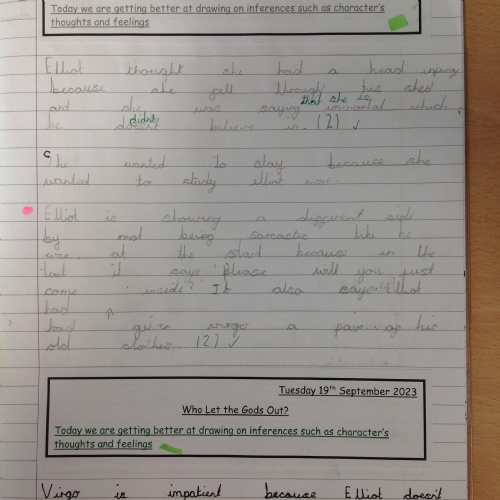 Today we are getting better at drawing on inferences such as character's
thoughts and feelings
Elliot thought she had a head injury
because she fell through his shed
that she is
and she was saying immortal which
didnt
he doesnt believe in. (2) ✓
She wanted to stay because she
wanted to study elliot more.
Elliot is showing a different side
by not being sarcastic like he
was at the start because in the
text it says 'Please will you just
come inside?' It also says Elliot
had
had given virgo a pair of his
old clothes (2) ✓
Tuesday 19th September 2023
Who Let the Gods Out?
Today we are getting better at drawing on inferences such as character's
thoughts and feelings
Virgo is impatient because Elliot doesn't